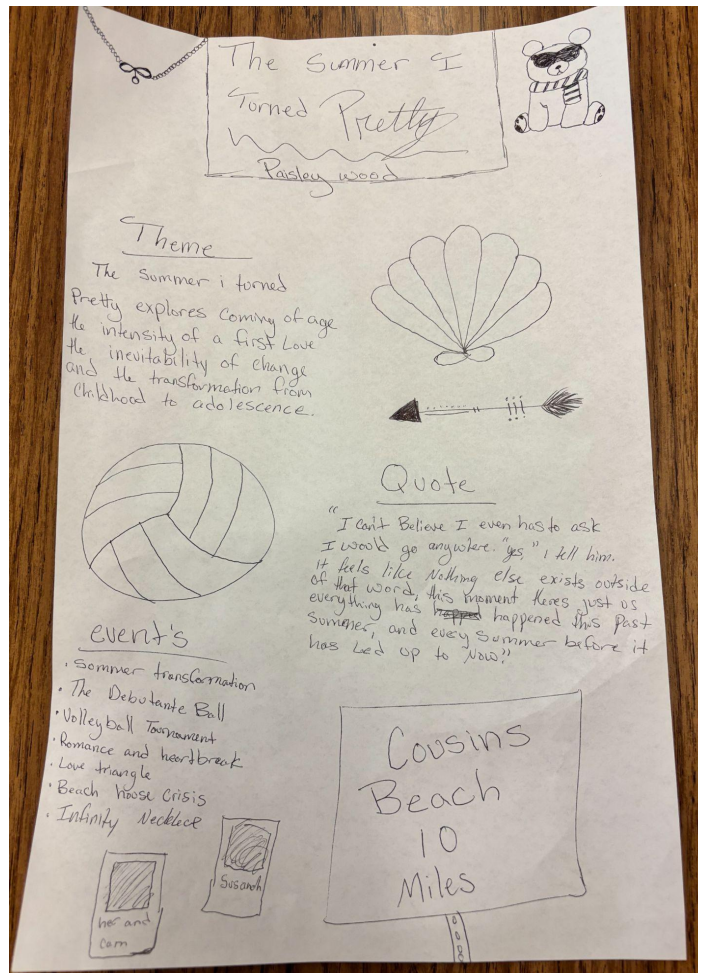 The Summer I
Turned Pretty
Paisley wood
Theme
The Summer i turned
Pretty explores Coming of age
the intensity of a first Love
the inevitability of change
and the transformation from
Childhood to adolescence.
Quote
"I can't Believe I even has to ask
I would go anywhere. "yes," I tell him.
it feels like Nothing else exists outside
of that word, this moment theres just us
everything has happened this Past
Summer, and every Summer before it
has Led up to Now."
event's
· Sommer transformation
· The Debutante Ball
· Volleyball Tournament
· Romance and heartbreak
· Love triangle
· Beach house Crisis
· Infinity Necklece
her and
cam
Susanah
Cousins
Beach
10
Miles